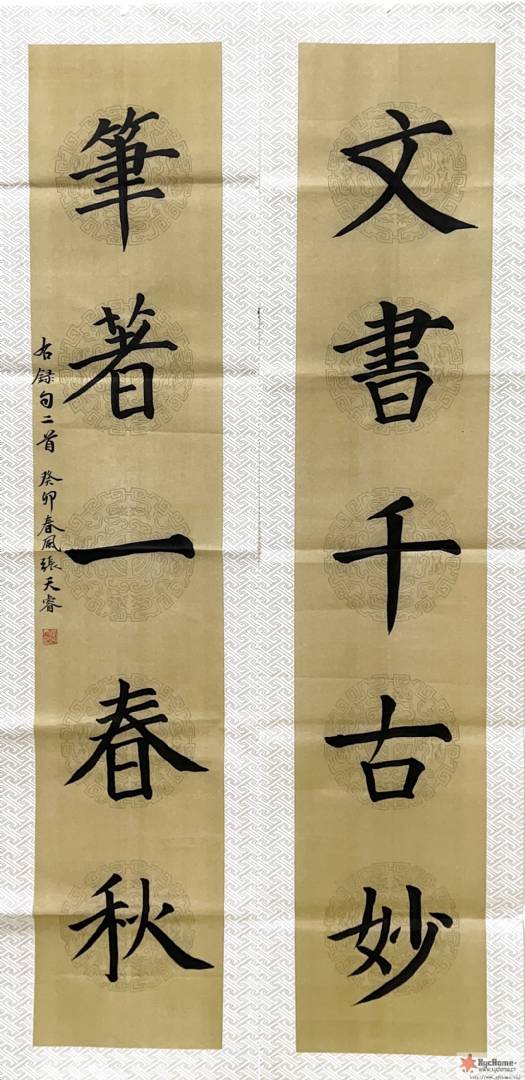 文書千古妙
筆著一春秋
右録句二首 癸卯春風張天睿
XycHome
www.xychome.cn